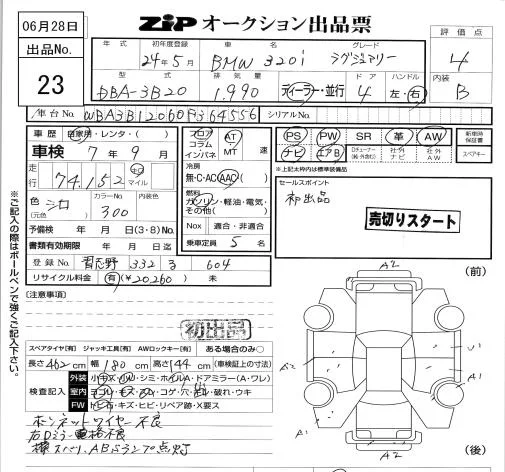 06月28日
ZIP オークション出品票
出品No.
23
年式 初年度登録 車名 グレード
24年5月 BMW 320i ラグジュアリー
型式 排気量 ドア ハンドル
DBA-3B20 1,990 ディーラー・並行 4 左・右
評価点
4
内装
B
車台No. WBA3B12060F364556 シリアルNo.
車歴 自家用・レンタ・( )
車検 7年9月
走行 74,152 キロ マイル
色 シロ (元色) カラーNo. 300
予備検 年 月 日(3・8)No.
書類有効期限 年 月 日迄
登録No. 習志野 332 る 604
リサイクル料金 有(¥20,260) 未
フロア コラム インパネ AT MT 速
冷房
無・C・AC AAC
燃料
ガソリン・軽油・電気・その他( )
Nox 適合・非適合
乗車定員 5名
PS PW SR 革 AW
ナビ エアB 社外ナビ 社外AW
新車時保証書
スペアキー
※上記太枠内は標準装備品
セールスポイント
初出品
売切りスタート
※ご記入の際はボールペンで強くご記入下さい。
[注意事項]
初出品
スペアタイヤ[有] ジャッキ工具[有] AWロックキー[有] ある場合のみ○
長さ 462 cm 幅 180 cm 高さ 144 cm (車検証上の寸法)
検査記入
外装 小キズ・凹・シミ・ホイルA・ドアミラー(A・ワレ)
室内 ヨゴレ・キズ・スレ・コゲ・穴・ビル・破れ・ウキ
FW トビ石・キズ・ヒビ・リペア跡・X要ス
ボンネットワイヤー不良
右Dミラー電格不良
横スベリ、ABSランプ点灯
(前)
A2
A2
A1
A2
(後)